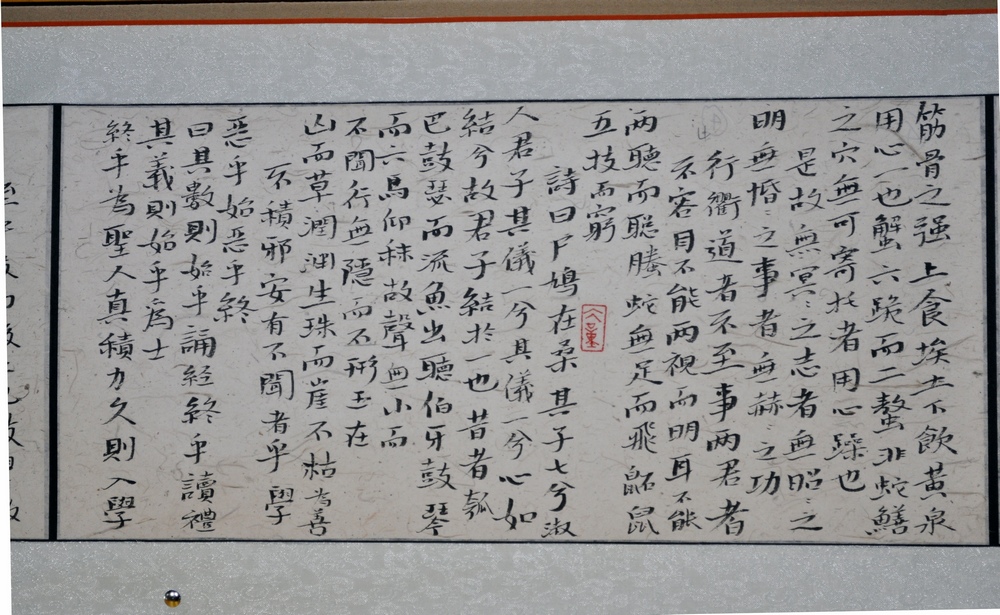 筋骨之强上食埃土下飲黃泉
用心一也蟹六跪而二螯非蛇鱔
之穴無可寄托者用心躁也
是故無冥〻之志者無昭〻之
明無惛〻之事者無赫〻之功
行衢道者不至事兩君者
不容目不能兩視而明耳不能
兩聽而聰螣蛇無足而飛鼫鼠
五技而窮
詩曰尸鳩在桑其子七兮淑
人君子其儀一兮其儀一兮心如
結兮故君子結於一也昔者瓠
巴鼓瑟而流魚出聽伯牙鼓琴
而六馬仰秣故聲無小而
不聞行無隱而不形玉在
山而草潤渊生珠而崖不枯為善
不積邪安有不聞者乎學
惡乎始惡乎終
曰其數則始乎誦經終乎讀禮
其義則始乎為士
終乎為聖人真積力久則入學